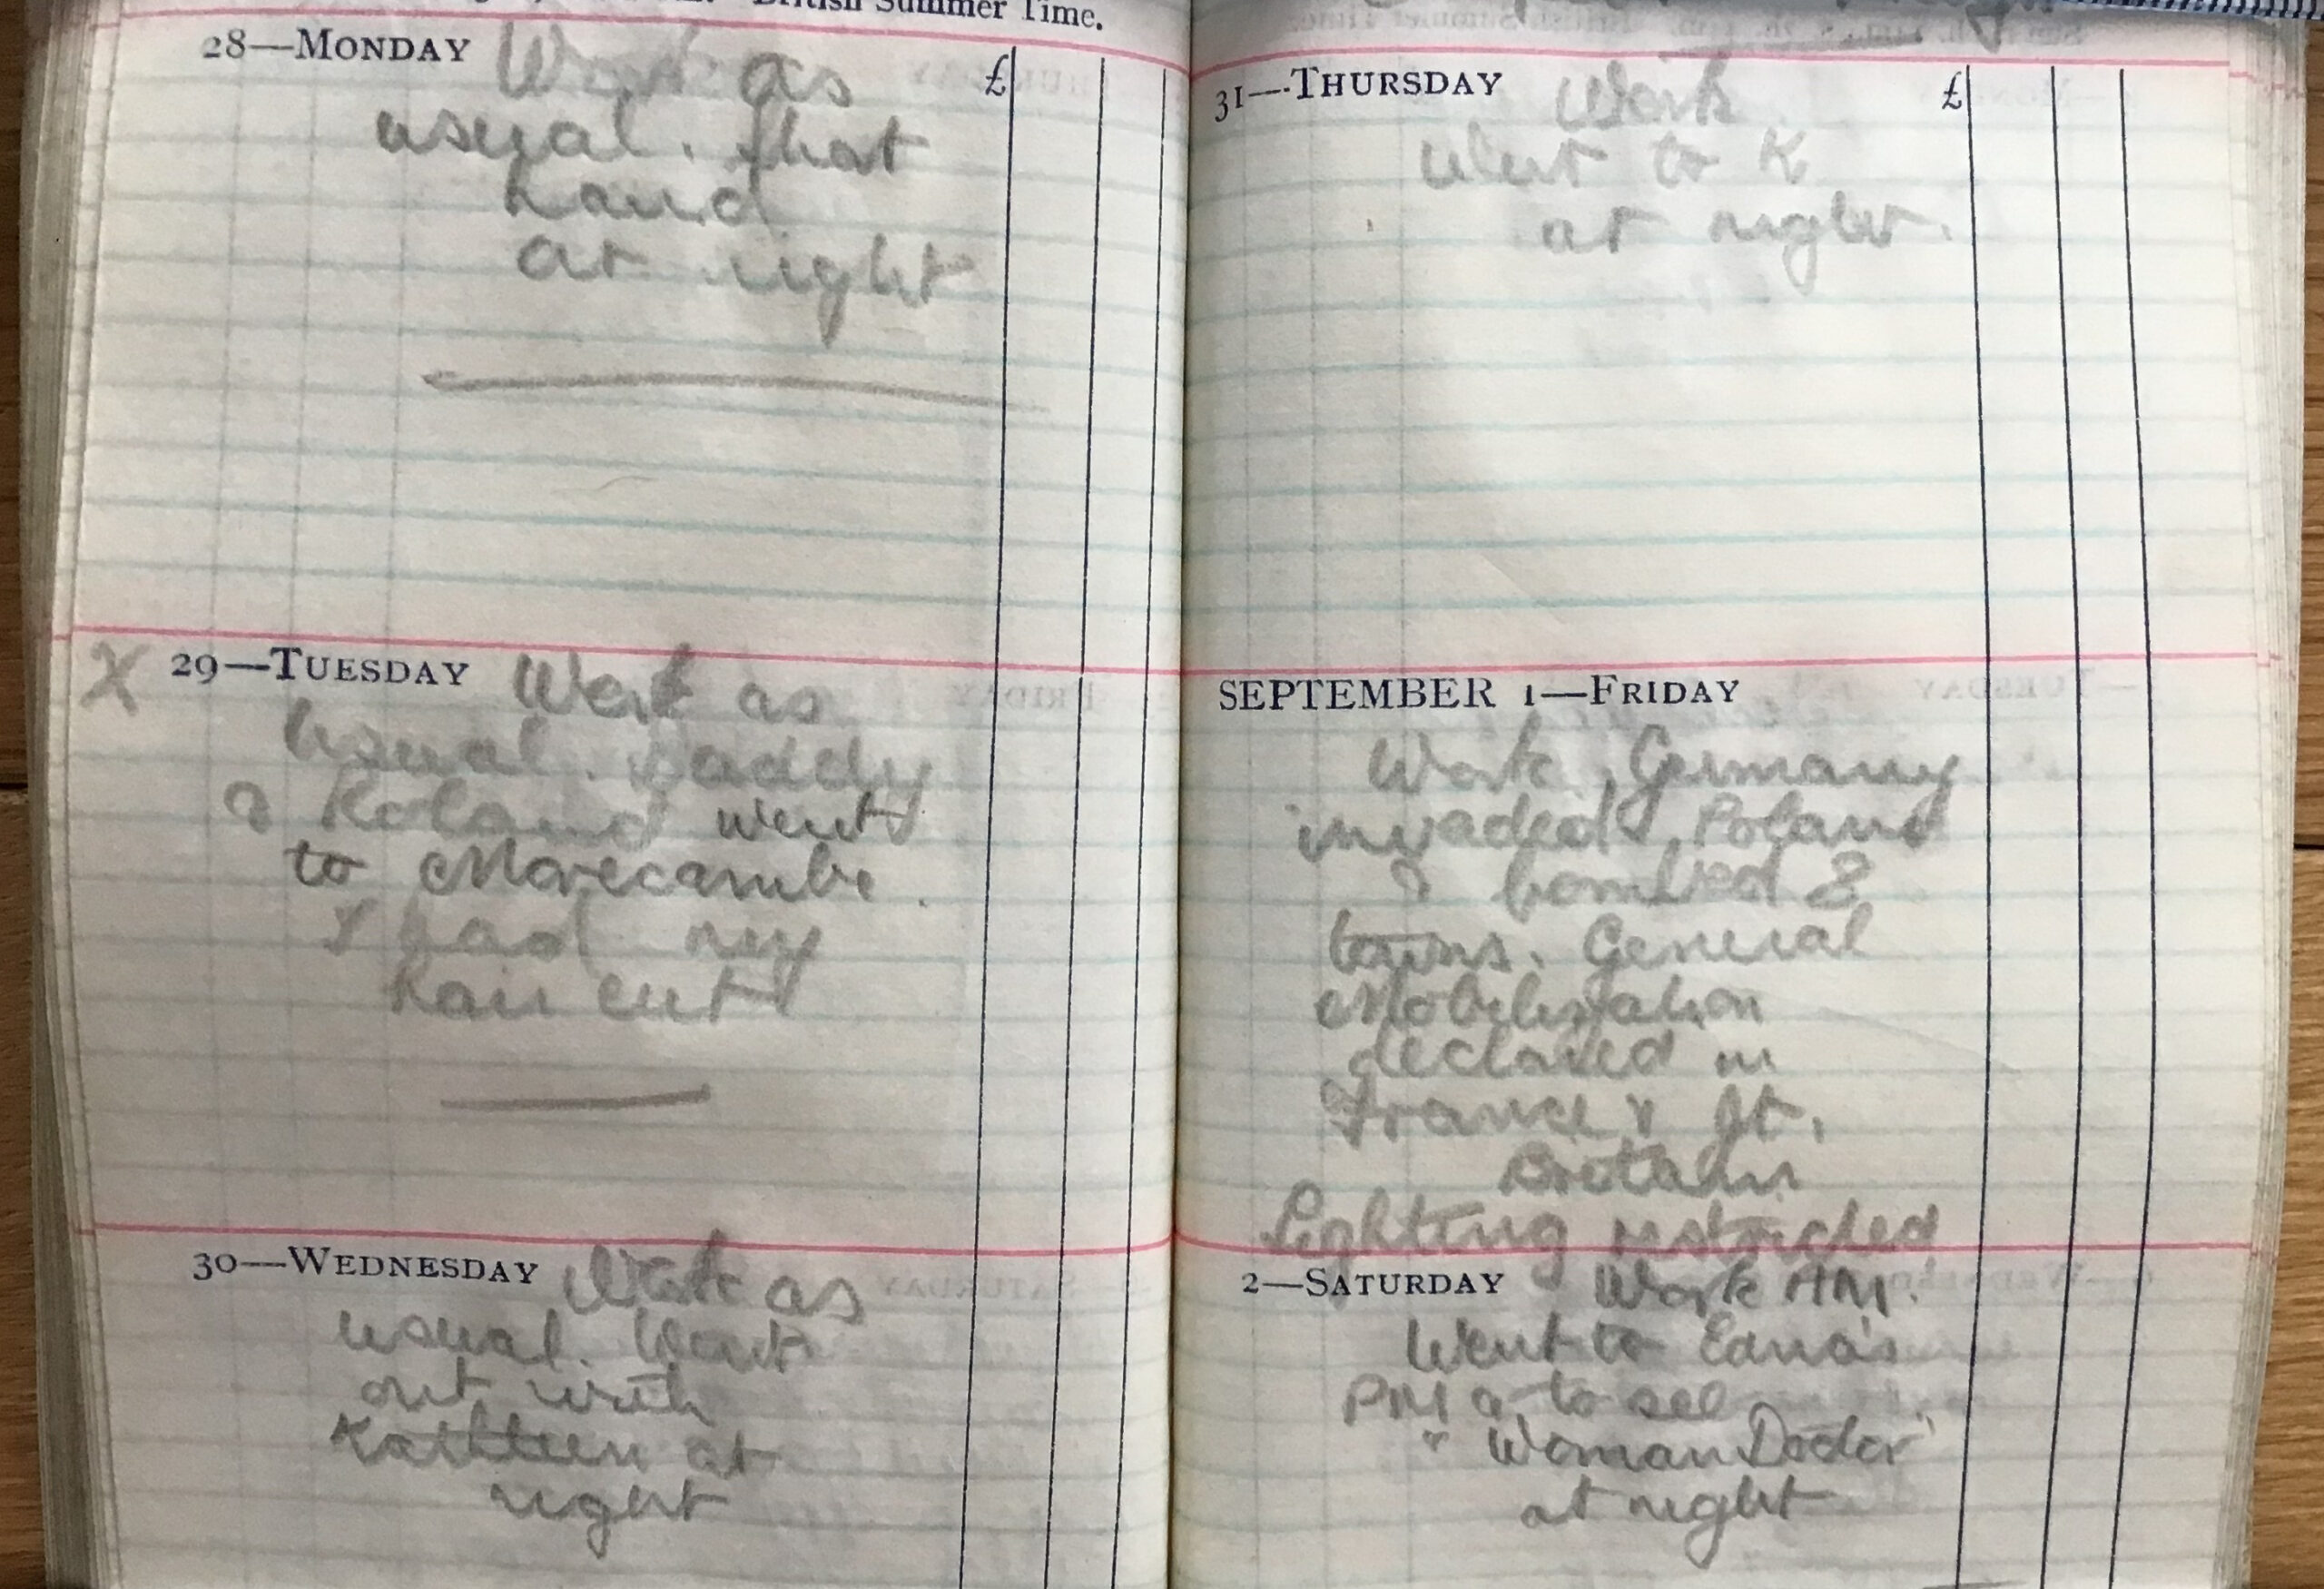 British Summer Time.
28—MONDAY Work as
£
usual. Shorthand
at night
29—TUESDAY Work as
X
usual. Daddy
& Roland went
to Morecambe.
I had my
hair cut
30—WEDNESDAY Work as
usual. Went
out with
Kathleen at
night
31—THURSDAY Work
£
Went to K
at night.
SEPTEMBER 1—FRIDAY
Work. Germany
invaded Poland
& bombed 8
towns. General
Mobilisation
declared in
France & Gt.
Britain
Lighting restricted
2—SATURDAY Work AM.
Went to Edna's
PM & to see
"Woman Doctor"
at night